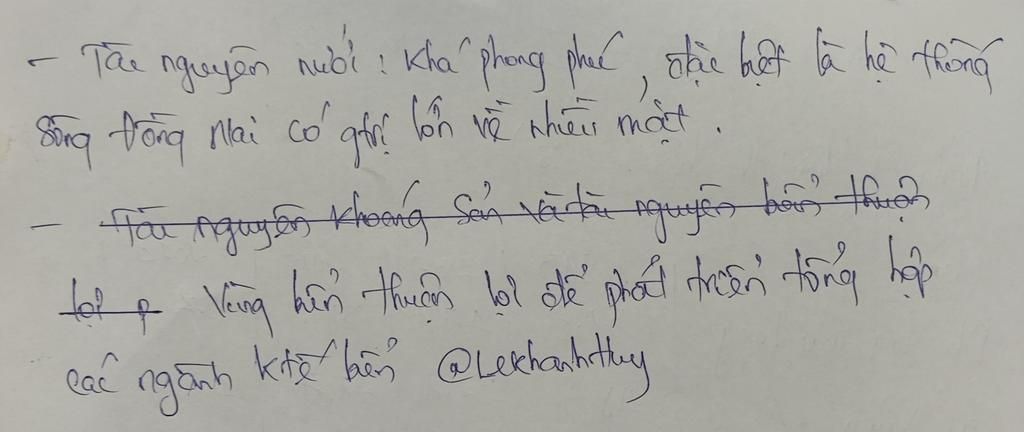 - Tài nguyên nước : Khá phong phú, đặc biệt là hệ thống
sông Đồng Nai có gtrị lớn về nhiều mặt.
- Tài nguyên khoáng sản và tài nguyên biển thuận
lợi p Vùng biển thuận lợi để phát triển tổng hợp
các ngành ktế biển @Lekhanhthuy